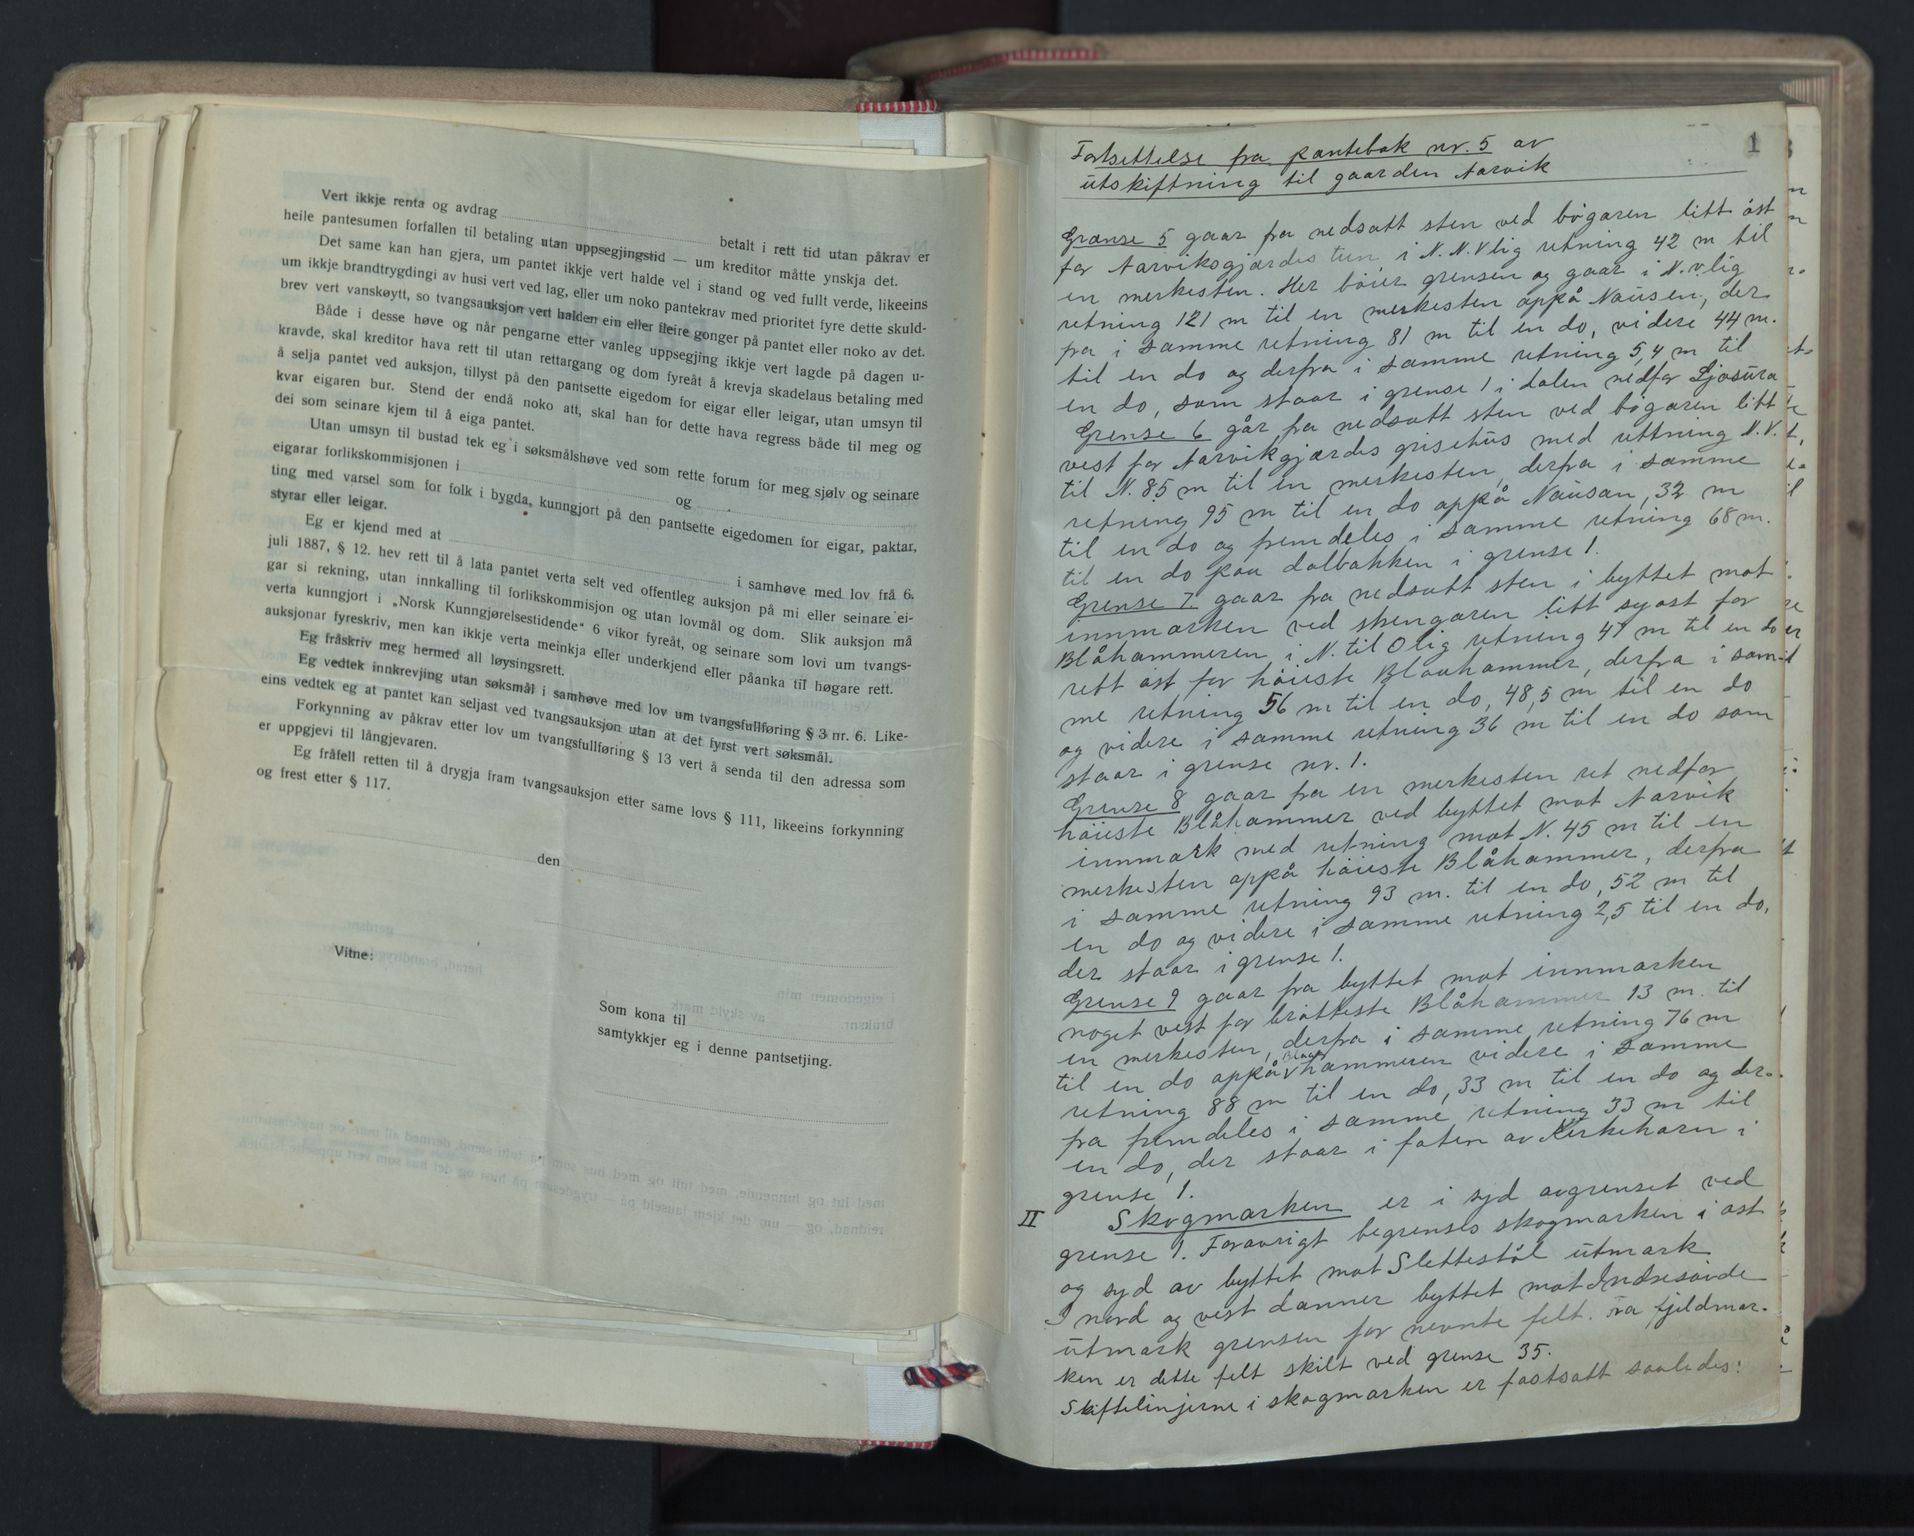 Vert ikkje renta og avdrag betalt i rett tid utan påkrav er
heile pantesumen forfallen til betaling utan uppsegjingstid — um kreditor måtte ynskja det.
Det same kan han gjera, um pantet ikkje vert halde vel i stand og ved fullt verde, likeeins
um ikkje brandtrygdingi av husi vert ved lag, eller um noko pantekrav med prioritet fyre dette skuld-
brev vert vanskøytt, so tvangsauksjon vert halden ein eller fleire gonger på pantet eller noko av det.
Både i desse høve og når pengarne etter vanleg uppsegjing ikkje vert lagde på dagen u-
kravde, skal kreditor hava rett til utan rettargang og dom fyreåt å krevja skadelaus betaling med
å selja pantet ved auksjon, tillyst på den pantsette eigedom for eigar eller leigar, utan umsyn til
kvar eigaren bur. Stend der endå noko att, skal han for dette hava regress både til meg og
dei som seinare kjem til å eiga pantet.
Utan umsyn til bustad tek eg i søksmålshøve ved som rette forum for meg sjølv og seinare
eigarar forlikskommisjonen i og
ting med varsel som for folk i bygda, kunngjort på den pantsette eigedomen for eigar, paktar,
styrar eller leigar.
Eg er kjend med at i samhøve med lov frå 6.
juli 1887, § 12. hev rett til å lata pantet verta selt ved offentleg auksjon på mi eller seinare ei-
gar si rekning, utan innkalling til forlikskommisjon og utan lovmål og dom. Slik auksjon må
verta kunngjort i „Norsk Kunngjørelsestidende“ 6 vikor fyreåt, og seinare som lovi um tvangs-
auksjonar fyreskriv, men kan ikkje verta meinkja eller underkjend eller påanka til høgare rett.
Eg fråskriv meg hermed all løysingsrett.
Eg vedtek innkrevjing utan søksmål i samhøve med lov um tvangsfullføring § 3 nr. 6. Like-
eins vedtek eg at pantet kan seljast ved tvangsauksjon utan at det fyrst vert søksmål.
Forkynning av påkrav etter lov um tvangsfullføring § 13 vert å senda til den adressa som
er uppgjevi til långjevaren.
Eg fråfell retten til å drygja fram tvangsauksjon etter same lovs § 111, likeeins forkynning
og frest etter § 117.
den
Vitne:
Som kona til
samtykkjer eg i denne pantsetjing.
1
Fortsettelse fra pantebok nr. 5 av
utskiftning til gaarden Aarvik
Grænse 5 gaar fra nedsatt sten ved bøgaren litt øst
for Aarviksgjærdis tun i N.N.Vlig retning 42 m til
en merkesten. Her bøier grensen og gaar i N.vlig
retning 121 m til en merkesten oppå Nausen, der
fra i samme retning 81 m til en do, videre 44 m.
til en do og derfra i samme retning 5,4 m til
en do, som staar i grense 1 i dalen nedfor Ljosura
Grense 6 går fra nedsatt sten ved bøgaren litt
vest for Aarvikgjærdes grisehus med rettning N.V.
til N. 85 m til en merkesten, derfra i samme
retning 95 m til en do oppå Nausan, 32 m
til en do og fremdeles i samme retning 68 m.
til en do paa dalbakken i grense 1.
Grense 7 gaar fra nedsatt sten i byttet mot
innmarken ved stengaren litt syost for
Blåhammeren i N. til Olig retning 47 m til en do
rett øst for høieste Blaahammer, derfra i sam-
me retning 56 m til en do, 48,5 m til en do
og videre i samme retning 36 m til en do som
staar i grense nr. 1.
Grense 8 gaar fra en merkesten ret nedfor
høieste Blåhammer ved byttet mot Aarvik
innmark med retning mot N. 45 m til en
merkesten oppå høieste Blåhammer, derfra
i samme retning 93 m. til en do, 52 m til
en do og videre i samme retning 2,5 til en do,
der staar i grense 1.
Grense 9 gaar fra byttet mot innmarken
noget vest for bratteste Blåhammer 13 m. til
en merkesten, derfra i samme retning 76 m
til en do oppå Blaahammeren videre i samme
retning 88 m til en do, 33 m til en do og der-
fra fremdeles i samme retning 33 m til
en do, der staar i foten av Kirkehorn i
grense 1.
II Skogmarken er i syd avgrenset ved
grense 1. Foravrigt begrenses skogmarken i øst
og syd av byttet mot Slettestøl utmark
I nord og vest danner byttet mot Indresøvde
utmark grensen for nevnte felt. Fra fjeldmar-
ken er dette felt skilt ved grense 35.
Skiftelinjerne i skogmarken er fastsatt saaledes: